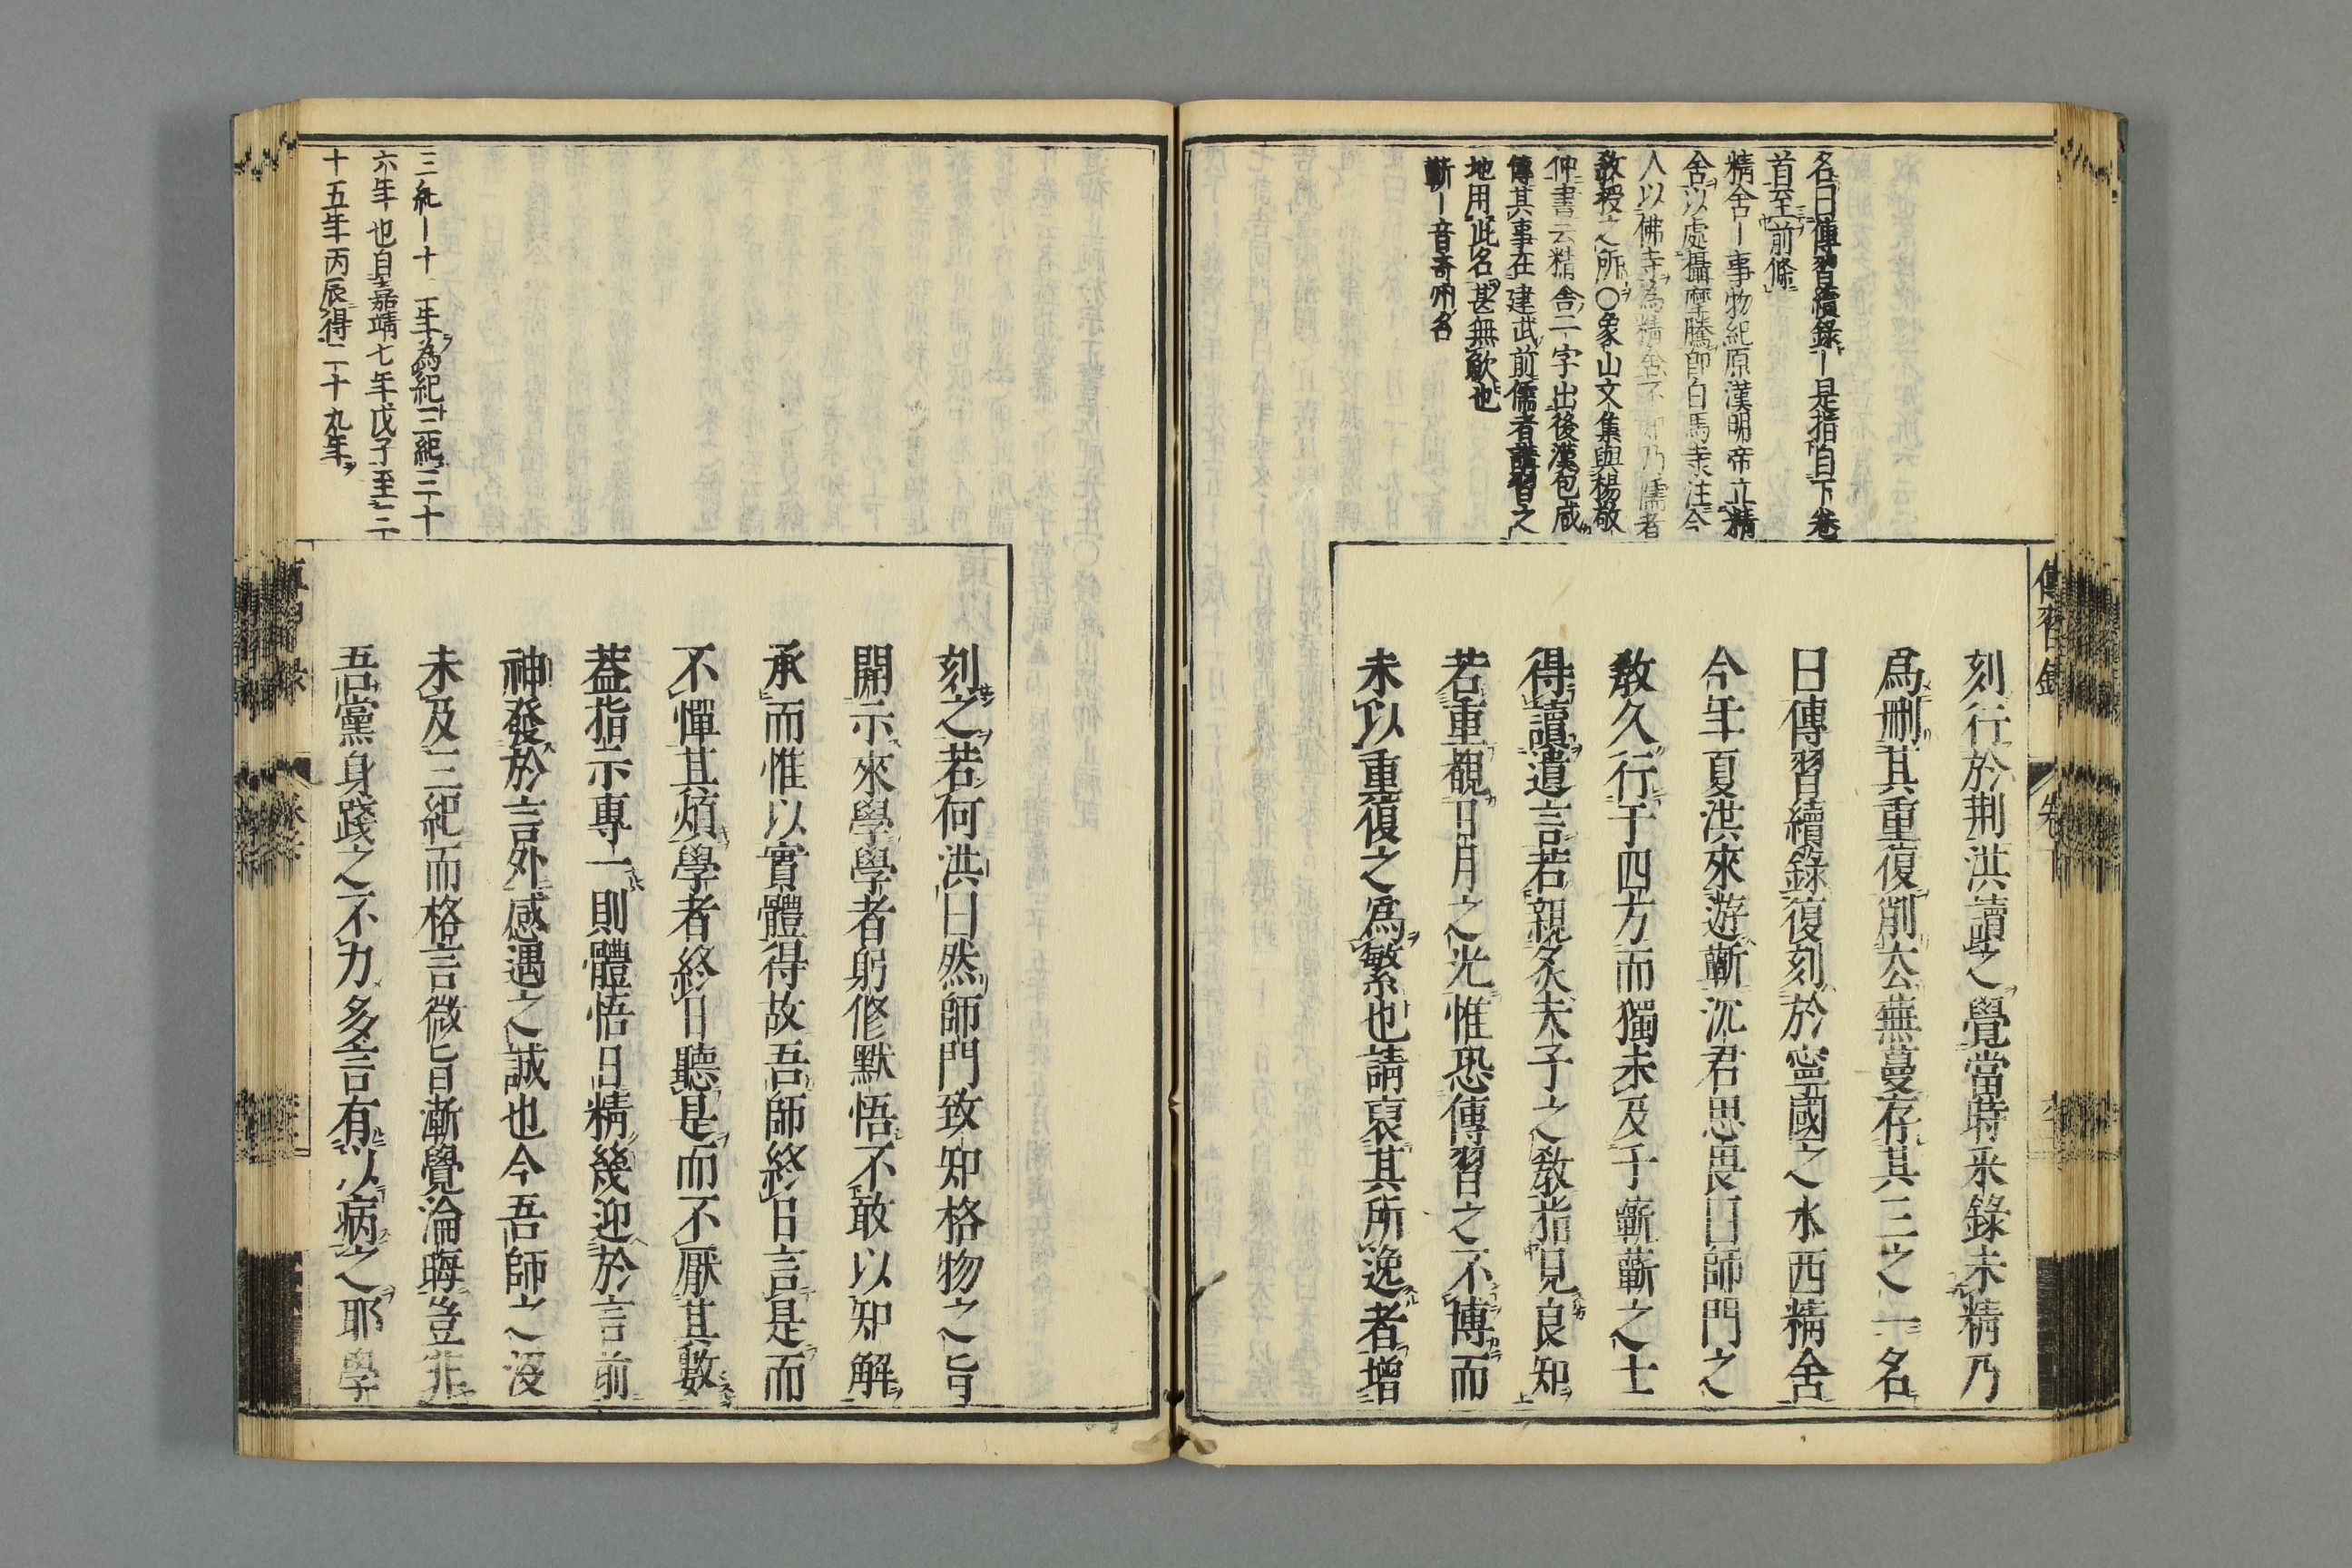 名曰傳習續錄｜是指自下卷
首至前條
精舍｜事物紀原漢明帝立精
舍以處攝摩騰卽白馬寺注今
人以佛寺爲精舍不知乃儒者
敎授之所○象山文集與楊敬
仲書云精舍二字出後漢包咸
傳其事在建武前儒者講習之
地用此名甚無歉也
蘄｜音奇州名
傳習錄
卷下
刻行於荆洪讀之覺當時采錄未精乃
爲刪其重復削去蕪蔓存其三之一名
曰傳習續錄復刻於寧國之水西精舍
今年夏洪來遊蘄沉君思畏曰師門之
敎久行于四方而獨未及于蘄蘄之士
得讀遺言若親炙夫子之敎指見良知
若重覩日月之光惟恐傳習之不博而
未以重復之爲繁也請裒其所逸者增
三紀｜十二年爲紀三紀三十
六年也自嘉靖七年戊子至三
十五年丙辰得二十九年
刻之若何洪曰然師門致知格物之旨
開示來學學者躬修默悟不敢以知解
承而惟以實體得故吾師終日言是而
不憚其煩學者終日聽是而不厭其數
葢指示專一則體悟日精幾迎於言前
神發於言外感遇之誠也今吾師之沒
未及三紀而格言微旨漸覺淪晦豈非
吾黨身踐之不力多言有以病之耶學